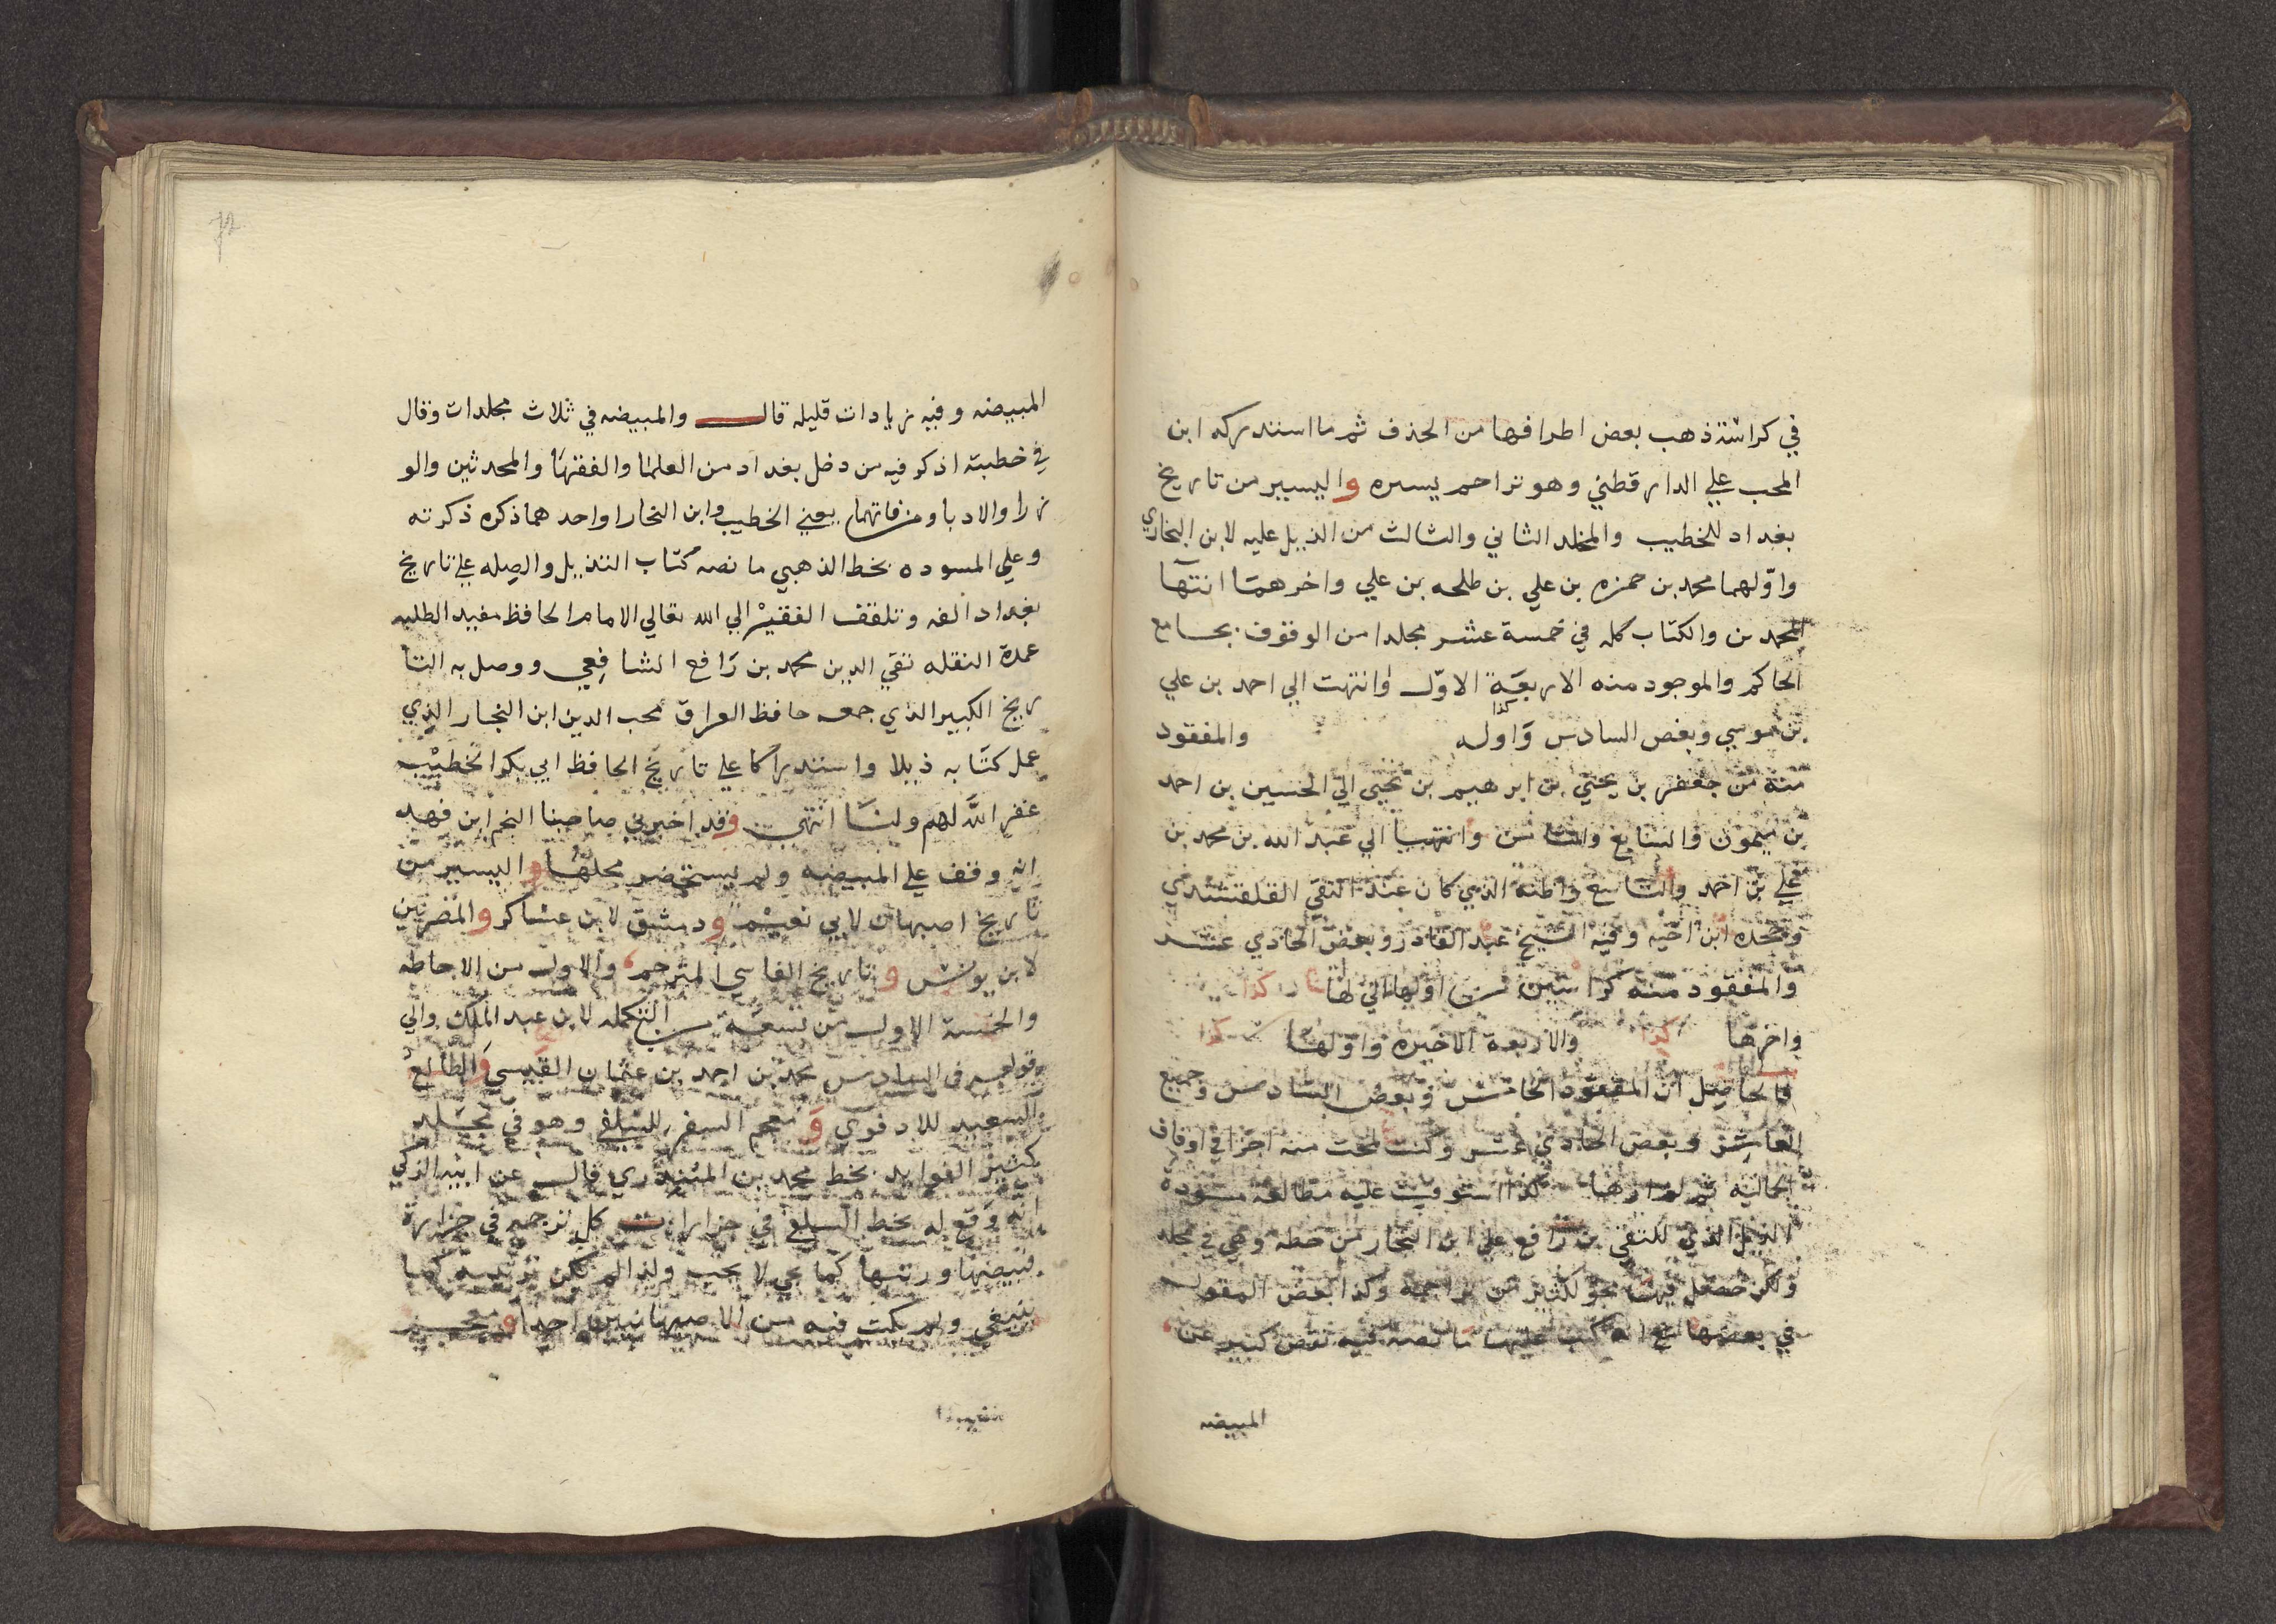 في كراسة ذهب بعض اطرافها من الحذف ثم ما استدركه ابن
المحب علي الدارقطني وهو تراجم يسيره واليسير من تاريخ
بغداد للخطيب والمجلد الثاني والثالث من الذيل عليه لابن النجاري
واوّلهما محمد بن حمزه بن علي بن طلحه بن علي واخرهما انتها
المحمدين والكتاب كله في خمسة عشر مجلدا من الوقوف بجامع
الحاكم والموجود منه الاربعة الاوّل وانتهت الي احمد بن علي
بن موسي وبعض السادس واوله كذا والمفقود
منه من جعفر بن يحيي بن ابرهيم بن يحيي الي الحسين بن احمد
بن ميمون والسابع والثامن وانتهيا الي عبد الله بن محمد بن
علي بن احمد والتاسع واظنه الذي كان عند التقي القلقشندي
وجحده ابن اخيه وفيه الشيخ عبد القادر وبعض الحادي عشر
والمفقود منه كراستين من اولها الي كذا
واخرها كذا والاربعة الاخيره واوّلها كذا
فالحاصل ان المفقود الخامس وبعض السادس وجميع
العاشر وبعض الحادي عشر وكنت لمحت منه اجزا في اوقاف
الجماليه ثم لم ارها كذا استوفيت عليه مطالعة مسودة
الذيل الذي للتقي بن رافع علي ابن النجار من خطه وهي في مجلد
ولكن حصل فيها محو لكثير من تراجمه وكذا بعض النقول
في بعضها مع انه كتب عليها ما نصه فيه نقص كثير عن
المبيضه
72
المبيضه وفيه زيادات قليله قال والمبيضه في ثلاث مجلدات وقال
في خطبته اذكر فيه من دخل بغداد من العلما والفقها والمحدثين والو
زرا والادبا ومن فاتهما يعني الخطيب وابن النجار او احدهما ذكره ذكرته
وعلي المسوده بخط الذهبي ما نصه كتاب التذييل والصله علي تاريخ
بغداد الفه وتلقفه الفقير الي الله تعالي الامام الحافظ مفيد الطلبه
عمدة النقله تقي الدين محمد بن رافع الشافعي ووصل به التا
ريخ الكبير الذي جمعه حافظ العراق محب الدين ابن النجار الذي
عمل كتابه ذيلا واستدراكا علي تاريخ الحافظ ابي بكر الخطيب
غفر الله لهم ولنا انتهي وقد اخبرني صاحبنا النجم ابن فهد
انه وقف علي المبيضه ولم يستحضر محلها واليسير من
تاريخ اصبهان لابي نعيم ودمشق لابن عساكر والمصريين
لابن يونس وتاريخ الفاسي المترجم والاول من الاحاطه
والخمسة الاول من تسعة من التكمله لابن عبد الملك والي
وقوله في السادس محمد بن احمد بن عثمان القيسي والطالع
السعيد للادفوي ومعجم السفر للسلفي وهو في مجلد
كثير الفوايد بخط محمد بن المنذري قال عن ابيه الزكي
انه وقع له بخط السلفي في جزازات كل ترجمه في جزازة
فبيضها ورتبها كما يجي لا يجب ولذا لم يكن ترتيبه كما
ينبغي ولم يكتب فيه من الاصبهانيين احدا ومعجم